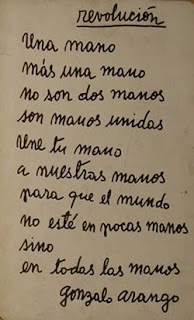 revolución
Una mano
más una mano
no son dos manos
son manos unidas
Une tu mano
a nuestras manos
para que el mundo
no esté en pocas manos
sino
en todas las manos
gonzalo arango